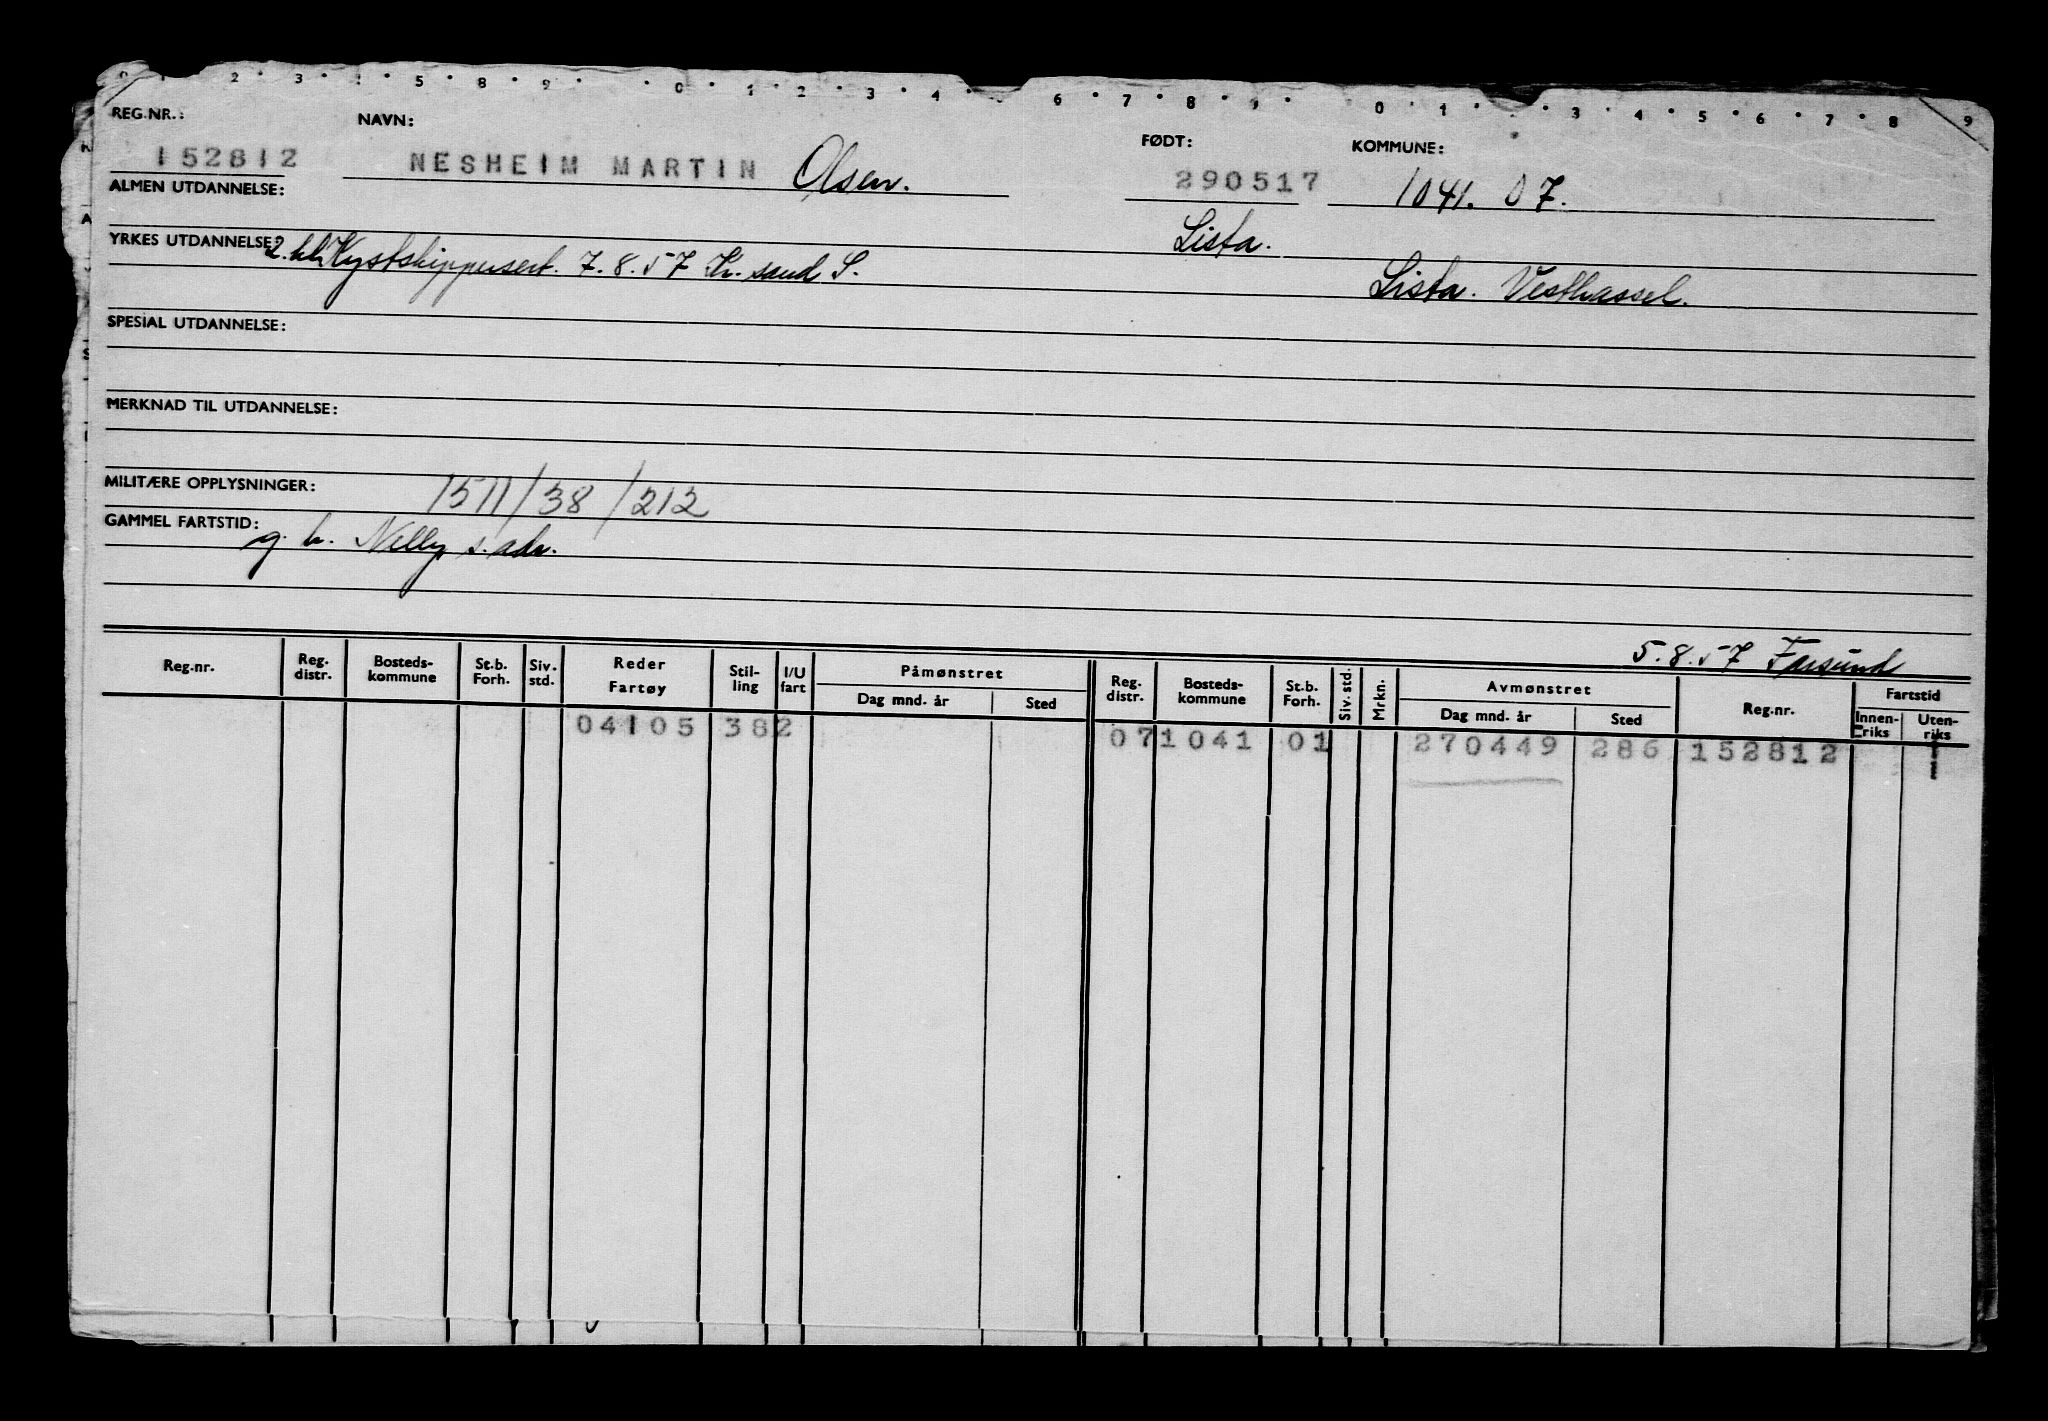 0 1 2 · 3 · 5 · 8 · 9 · · 0 · 1 · 2 · 3 · 4 · 6 · 7 · 8 · 9 · 0 · 1 · · 3 · 4 · 5 · 6 · 7 · 8 9
REG.NR.: NAVN: FØDT: KOMMUNE:
152812 NESHEIM MARTIN Olsen. 290517 1041. 07.
ALMEN UTDANNELSE:
Lista.
YRKES UTDANNELSE: 2. kl. Kystskippersert. 7.8.57 Kr.sand S.
Lista. Vesthassel.
SPESIAL UTDANNELSE:
MERKNAD TIL UTDANNELSE:
MILITÆRE OPPLYSNINGER: 1511/38/212
GAMMEL FARTSTID: g. h. Nelly s. adr.
5.8.57 Farsund
Reg.nr. Reg. distr. Bosteds-kommune St.b. Forh. Siv. std. Reder Fartøy Stil-ling I/U fart Påmønstret Dag mnd. år Sted Reg. distr. Bosteds-kommune St.b. Forh. Siv. std. Mrkn. Avmønstret Dag mnd. år Sted Reg.nr. Fartstid Innen-riks Uten-riks
04105 382 07 1041 01 270449 286 152812